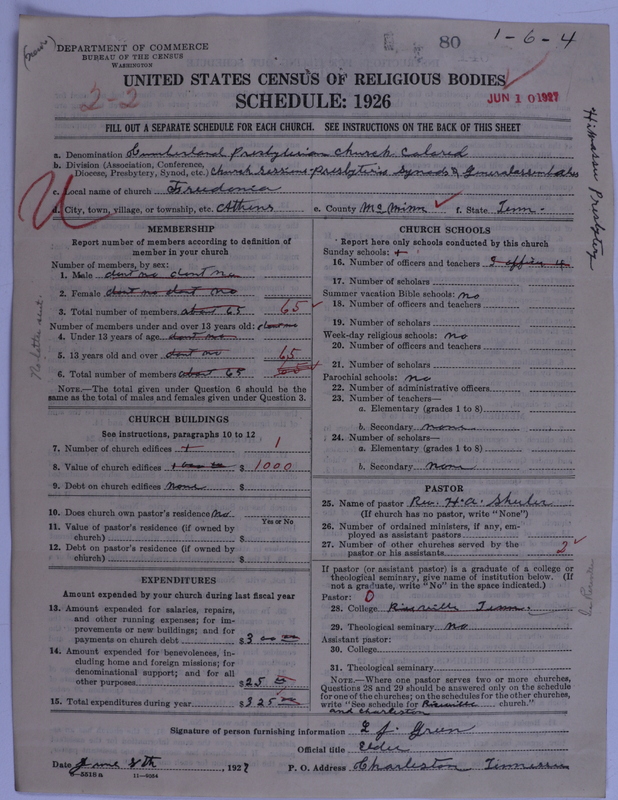 (news)
DEPARTMENT OF COMMERCE
BUREAU OF THE CENSUS
WASHINGTON
80
1-6-4
UNITED STATES CENSUS OF RELIGIOUS BODIES
2-2
SCHEDULE: 1926
JUN 10 1927
FILL OUT A SEPARATE SCHEDULE FOR EACH CHURCH. SEE INSTRUCTIONS ON THE BACK OF THIS SHEET
a. Denomination Cumberland Presbyterian Church Colored
b. Division (Association, Conference,
Diocese, Presbytery, Synod, etc.) Church Sessions-Presbyteris Synods & Generalassemblies
c. Local name of church Freedonia
d. City, town, village, or township, etc. Athens e. County McMinn f. State Tenn.
Hiwassee Presbytery
MEMBERSHIP
Report number of members according to definition of
member in your church
Number of members, by sex:
1. Male dont no dont no
2. Female dont no dont no
3. Total number of members about 65 65
Number of members under and over 13 years old:
4. Under 13 years of age dont no
5. 13 years old and over dont no 65
6. Total number of members about 65
NOTE.—The total given under Question 6 should be the
same as the total of males and females given under Question 3.
No letter sent
CHURCH BUILDINGS
See instructions, paragraphs 10 to 12
7. Number of church edifices 1 1
8. Value of church edifices $ 1000
9. Debt on church edifices none $
10. Does church own pastor's residence no
Yes or No
11. Value of pastor's residence (if owned by
church) $
12. Debt on pastor's residence (if owned by
church) $
EXPENDITURES
Amount expended by your church during last fiscal year
13. Amount expended for salaries, repairs,
and other running expenses; for im-
provements or new buildings; and for
payments on church debt $ 300
14. Amount expended for benevolences, in-
cluding home and foreign missions; for
denominational support; and for all
other purposes $ 25
15. Total expenditures during year $ 325
CHURCH SCHOOLS
Report here only schools conducted by this church
Sunday schools:
16. Number of officers and teachers
17. Number of scholars
Summer vacation Bible schools: no
18. Number of officers and teachers
19. Number of scholars
Week-day religious schools: no
20. Number of officers and teachers
21. Number of scholars
Parochial schools: no
22. Number of administrative officers
23. Number of teachers—
a. Elementary (grades 1 to 8)
b. Secondary none
24. Number of scholars—
a. Elementary (grades 1 to 8)
b. Secondary none
PASTOR
25. Name of pastor Rev. H. A. Shuler
(If church has no pastor, write "None")
26. Number of ordained ministers, if any, em-
ployed as assistant pastors
27. Number of other churches served by the
pastor or his assistants 2
If pastor (or assistant pastor) is a graduate of a college or
theological seminary, give name of institution below. (If
not a graduate, write "No" in the space indicated.)
Pastor: 0
28. College Riceville Tenn.
29. Theological seminary no
Assistant pastor:
30. College
31. Theological seminary
NOTE.—Where one pastor serves two or more churches,
Questions 28 and 29 should be answered only on the schedule
for one of the churches; on the schedules for the other churches,
write "See schedule for Riceville church."
and Charleston
Signature of person furnishing information L. J. Green
Official title Elder
Date June 8th, 1927 P. O. Address Charleston Tennessee
8—5518 a 11—9354